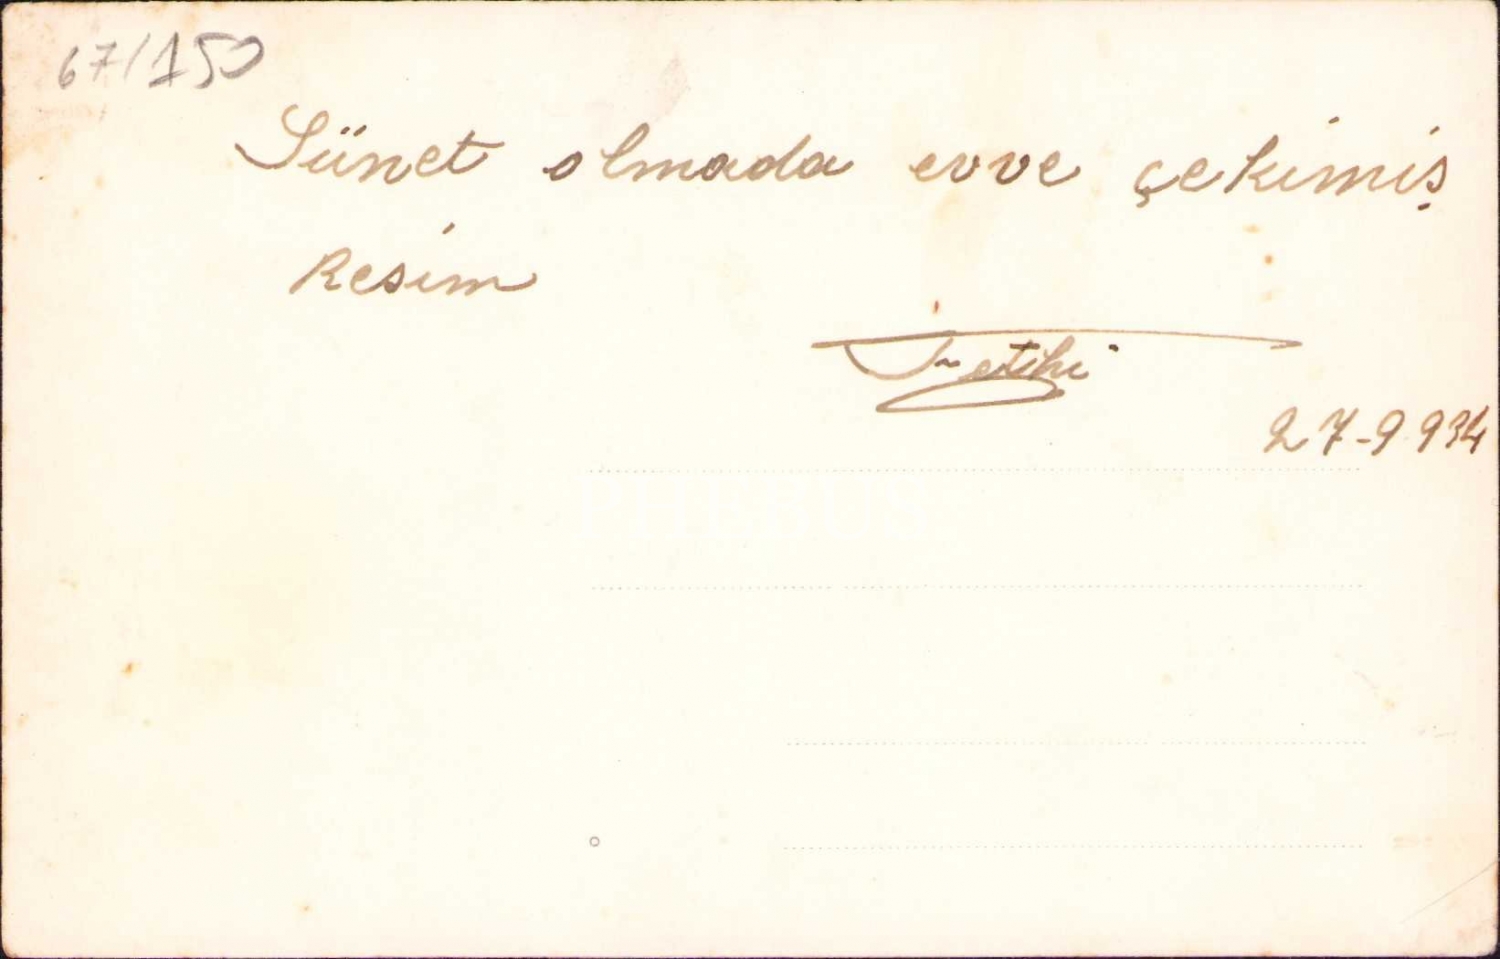 67/150
Sünet olmada evve çekimiş
Resim
Fetihi
27-9 934
PHEBUS